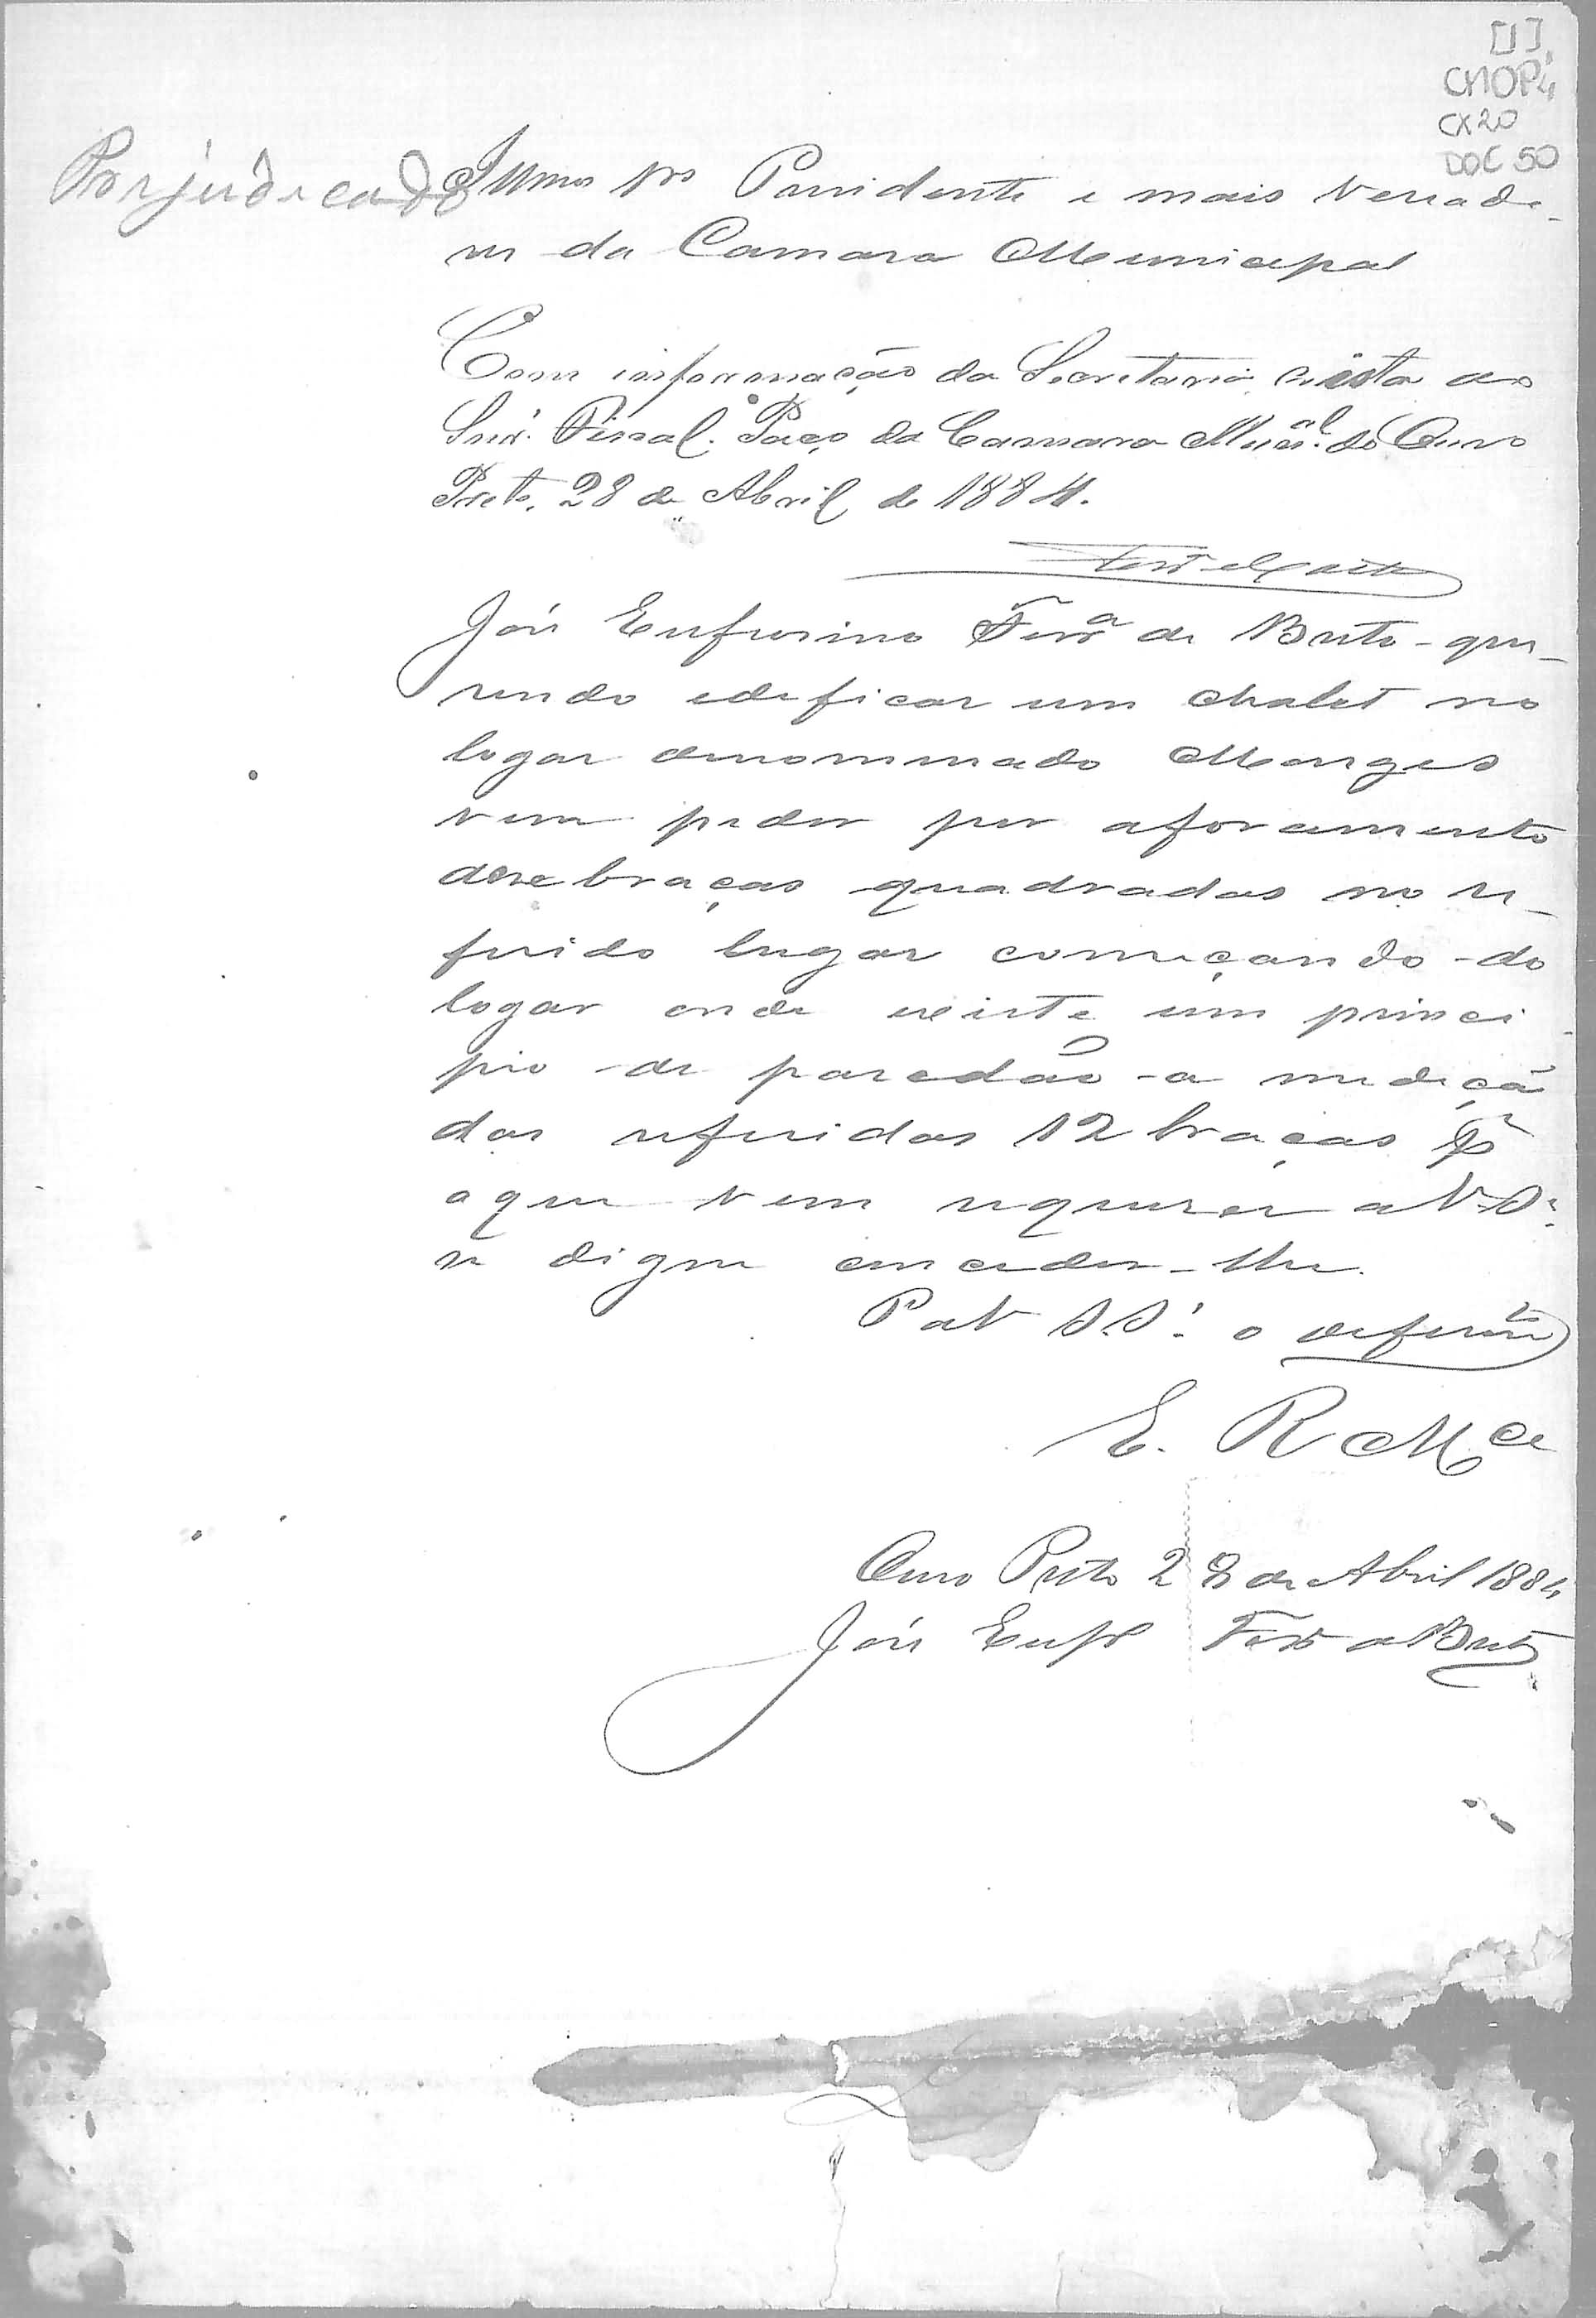 [1]
CMOP
CX 20
DOC 50
Prejudicado
Illmos Srs Presidente e mais Veriado-
res da Camara Municipal
Com informação da Secretaria, vista ao
Snr. Fiscal. Paço da Camara Mual. do Ouro
Preto, 28 de Abril de 1884.
José Eufrosino Ferra de Brito - que-
rendo edificar um chalet no
logar denominado Monges
vem pedir por aforamento
doze braças quadradas no re-
ferido lugar começando do
logar onde existe um princi
pio de paredão a medição
das referidas 12 braças
o que vem requerer a V.S.
se digne conceder-lhe.
P a V S.S. o deferimto
E. R Mce
Ouro Preto 28 de Abril 1884
José Eufr Ferr de Brito